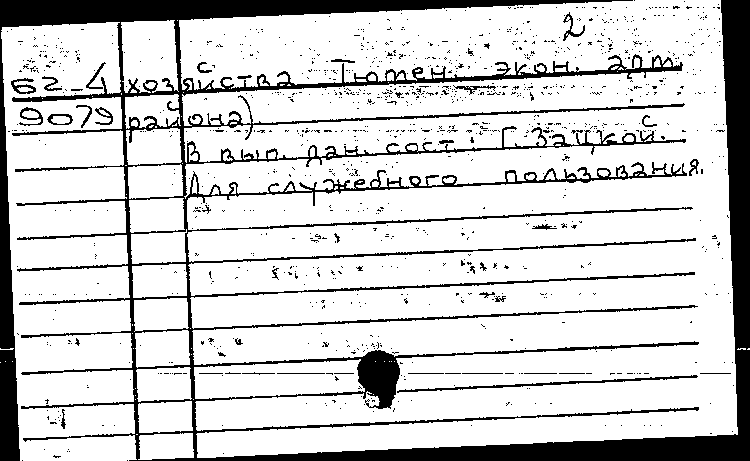 2
62-4 хозяйства Тюмен. экон. адм.
9079 района).
В вып. дан. сост.: Г. Зацкой.
Для служебного пользования.